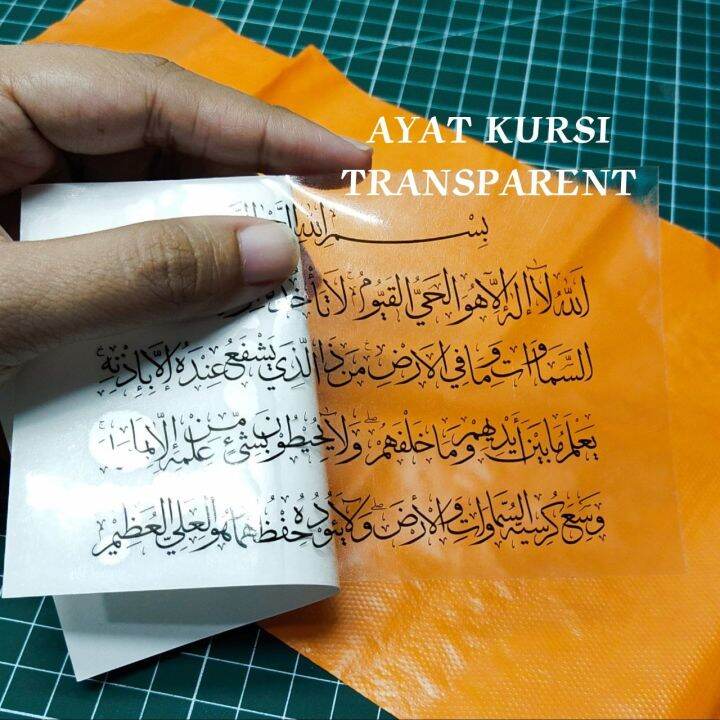 AYAT KURSI
TRANSPARENT
بِسْمِ اللهِ
اَللهُ لَآ اِلٰهَ اِلَّا هُوَ الْحَيُّ الْقَيُّومُ لَا
السَّمَاوَاتِ وَمَا فِي الْاَرْضِ مَنْ ذَا الَّذِي يَشْفَعُ عِنْدَهُ اِلَّا بِاِذْنِهِ
يَعْلَمُ مَا بَيْنَ اَيْدِيْهِمْ وَمَا خَلْفَهُمْ وَلَا يُحِيْطُوْنَ بِشَيْئٍ مِّنْ عِلْمِهِ اِلَّا بِمَا
وَسِعَ كُرْسِيُّهُ السَّمَاوَاتِ وَالْاَرْضَ وَلَا يَئُوْدُهُ حِفْظُهُمَا وَهُوَ الْعَلِيُّ الْعَظِيْمُ